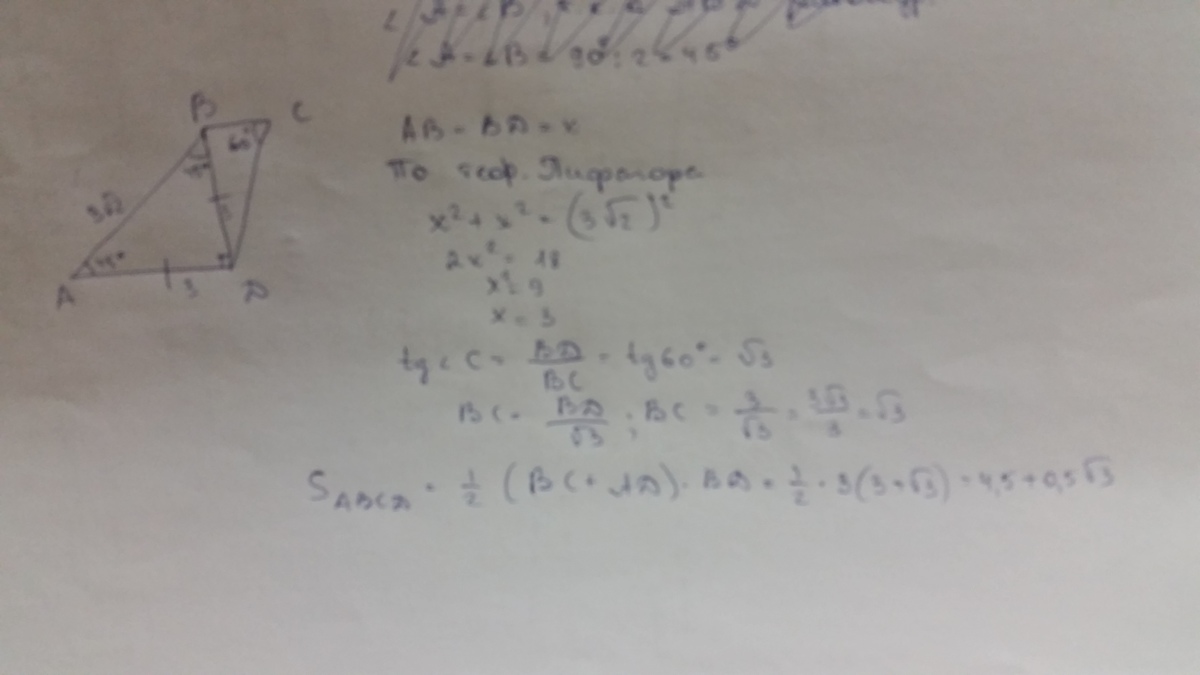 ∠A = ∠B = 90° : 2 = 45°
B C
60°
45°
3√2
3
45°
A 3 D
AB = BD = x
По теор. Пифагора
x² + x² = (3√2)²
2x² = 18
x² = 9
x = 3
tg ∠ C = BD/BC = tg 60° = √3
BC = BD/√3 ; BC = 3/√3 = 3√3/3 = √3
S ABCD = 1/2 (BC + AD) · BD = 1/2 · 3(3+√3) = 4,5 + 0,5√3